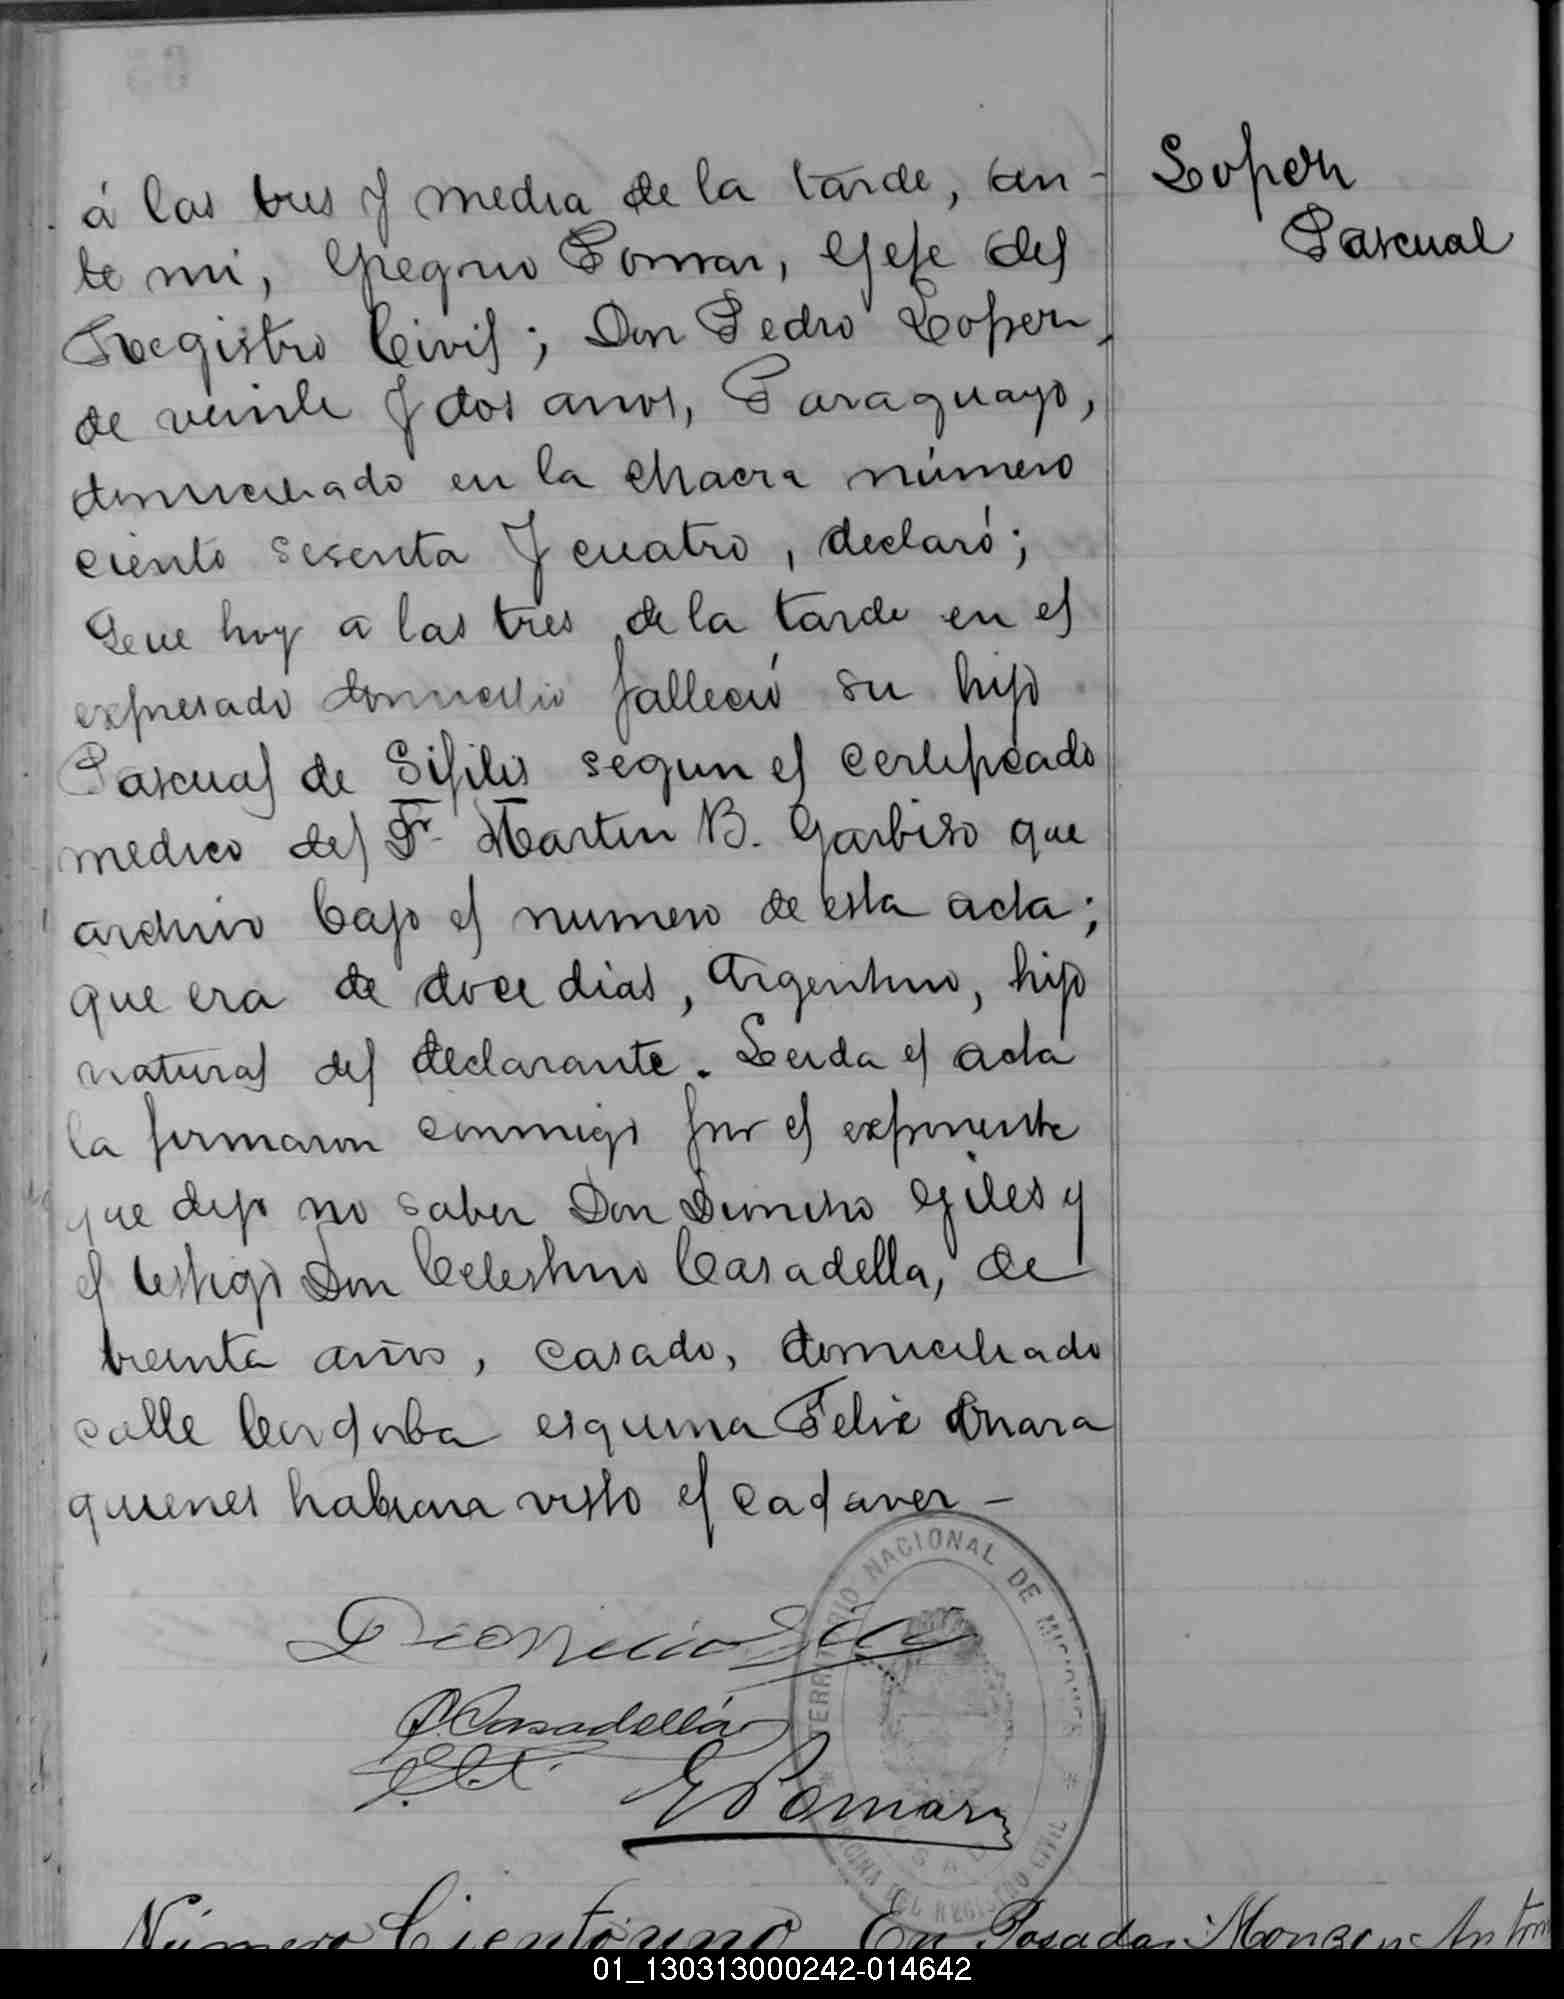 Lopez
Pascual
á las tres y media de la tarde, an-
te mi, Gregorio Pomar, Gefe del
Registro Civil; Don Pedro Lopez,
de veinte y dos anos, Paraguayo,
domiciliado en la chacra número
ciento sesenta y cuatro, declaró;
Que hoy a las tres de la tarde en el
expresado domicilio falleció su hijo
Pascual de Sifilis segun el certificado
medico del Martin B. Garbiso que
archivo bajo el numero de esta acta;
que era de doce dias, Argentino, hijo
natural del declarante. Leida el acta
la firmaron conmigo por el exponente
que dijo no saber Don Giles y
el testigo Don Celestino Casadella, de
treinta años, casado, domiciliado
calle Cordoba esquina Felix
quienes habian visto el cadaver-
TERRITORIO NACIONAL DE MISIONES
OFICINA DEL REGISTRO CIVIL
Casadellá
E Pomar
Número Ciento uno En Posadas Monzon Anton
01_130313000242-014642